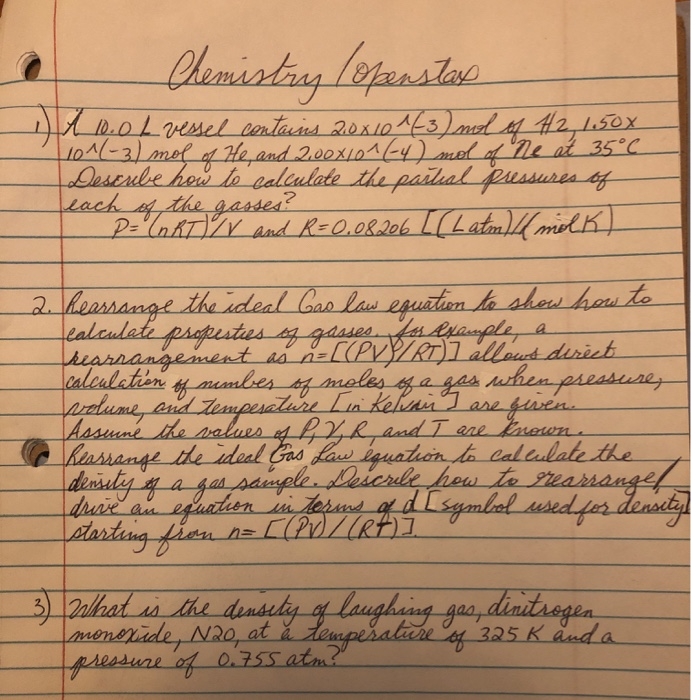 Chemistry / openstax
1) A 10.0 L vessel contains 2.0x10^(-3) mol of H2, 1.50x
10^(-3) mol of He, and 2.00x10^(-4) mol of Ne at 35°C
Describe how to calculate the partial pressures of
each of the gasses?
P= (nRT)/V and R=0.08206 [(Latm)/(mol K)
2. Rearrange the ideal Gas law equation to show how to
calculate properties of gasses. for example, a
rearrangement as n=[(PV)/RT)] allows direct
calculation of number of moles of a gas when pressure,
volume, and temperature [in Kelvin] are given.
Assume the values of P, V, R, and T are known.
Rearrange the ideal Gas Law equation to calculate the
density of a gas sample. Describe how to rearrange/
drive an equation in terms of d [symbol used for density]
starting from n= [(PV)/(RT)].
3) What is the density of laughing gas, dinitrogen
monoxide, N20, at a temperature of 325 K and a
pressure of 0.755 atm?